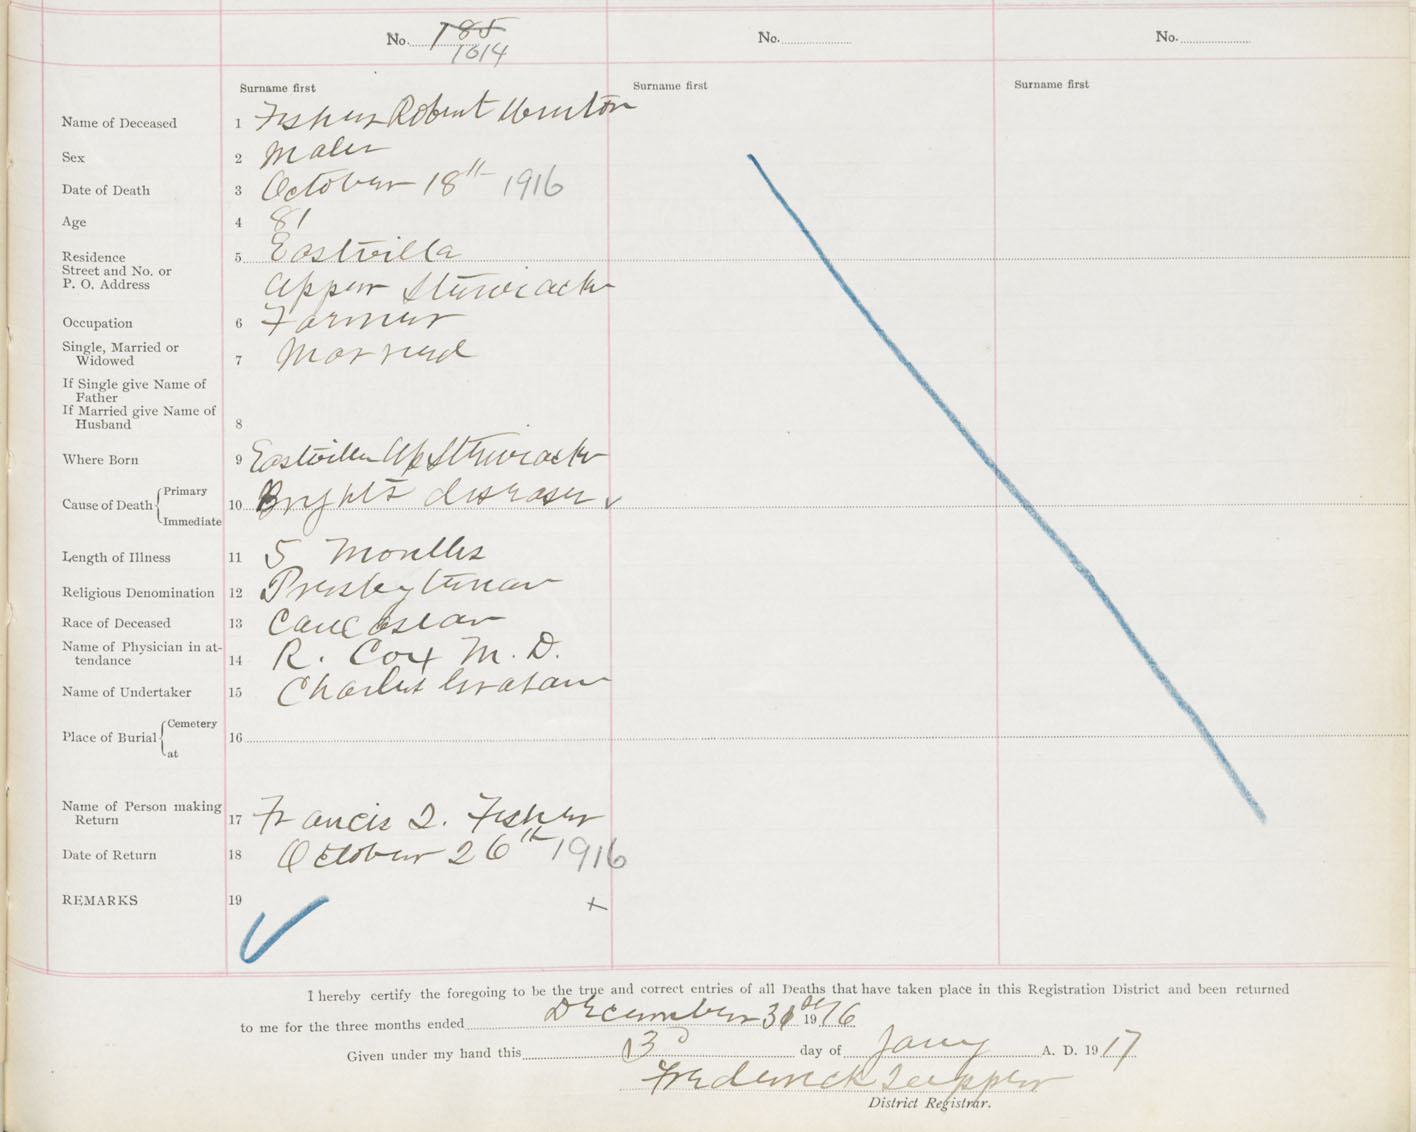 No. 185 No. No.
1014
Surname first Surname first Surname first
Name of Deceased 1 Fisher Robert
Sex 2 Male
Date of Death 3 October 18th 1916
Age 4 81
Residence 5 Eastville
Street and No. or
P. O. Address Upper Stewiacke
Occupation 6 Farmer
Single, Married or
Widowed 7 Married
If Single give Name of
Father
If Married give Name of
Husband 8
Where Born 9 Eastville Up Stewiacke
Cause of Death Primary 10 Brights disease ✓
Immediate
Length of Illness 11 5 Months
Religious Denomination 12 Presbyterian
Race of Deceased 13 Caucasian
Name of Physician in at-
tendance 14 R. Cox M. D.
Name of Undertaker 15 Charles
Place of Burial Cemetery 16
at
Name of Person making
Return 17 Francis Fisher
Date of Return 18 October 26th 1916
REMARKS 19
I hereby certify the foregoing to be the true and correct entries of all Deaths that have taken place in this Registration District and been returned
to me for the three months ended December 31st 1916
Given under my hand this 3d day of Jany A. D. 1917
Frederick
District Registrar.